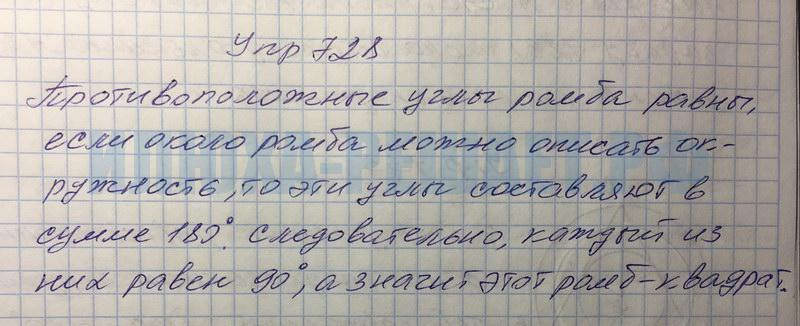 Упр 728
Противоположные углы ромба равны,
если около ромба можно описать ок-
ружность, то эти углы составляют в
сумме 180°. следовательно, каждый из
них равен 90°, а значит этот ромб-квадрат.